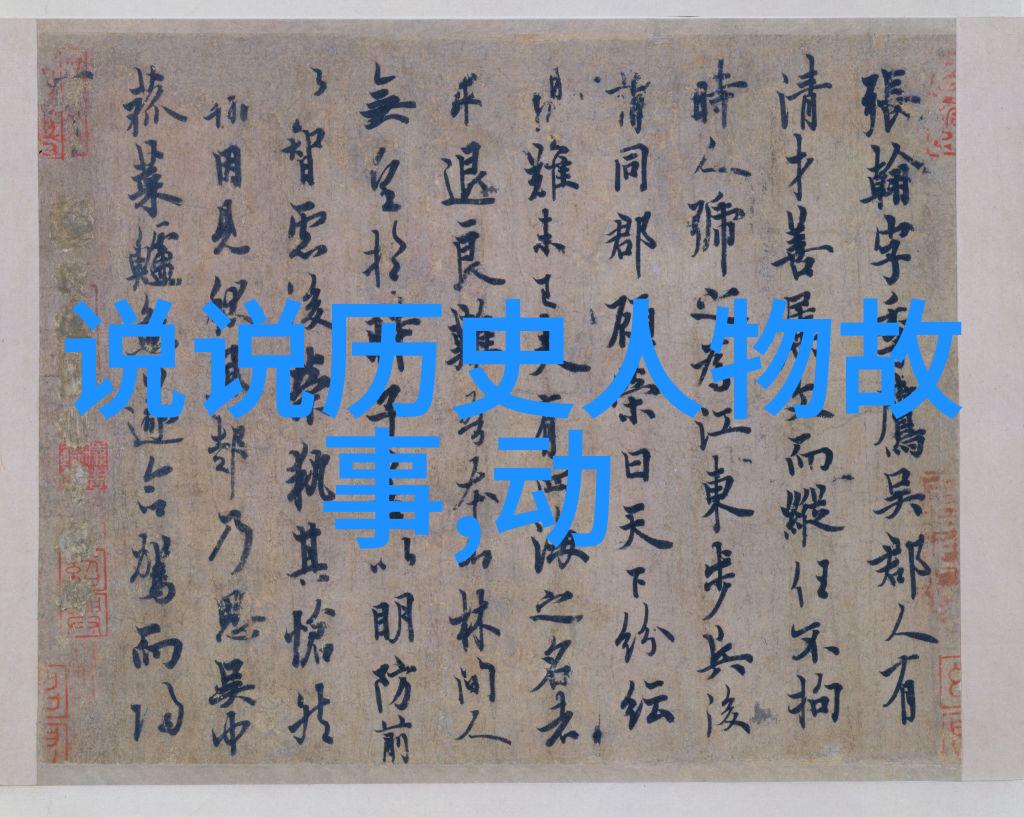 说说历史人物故
事,动
張翰字季鷹吳郡人有
清才善屬文而縱任不拘
時人號之為江東步兵後
謂同郡顧榮曰天下紛紜
難未已夫有四海之名者
求退良難吾本山林間人
無望於時子善以明防前
以智慮後榮執其愴然
翰因見秋風起乃思吳中
菰菜鱸魚遂命駕而歸